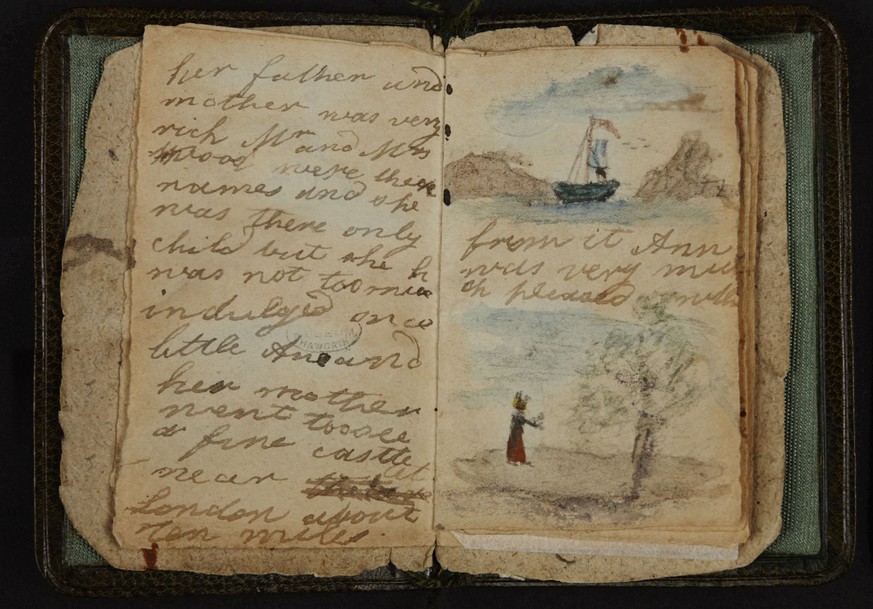 her father and
mother was very
rich Mr and Mrs
Wood were there
names and she
was there only
child but she
was not too mu
indulged once
little Ane and
her mother
went too see
a fine castle
near
London about
ten miles
from it Ann
was very mu
ch pleased with
HAWORTH